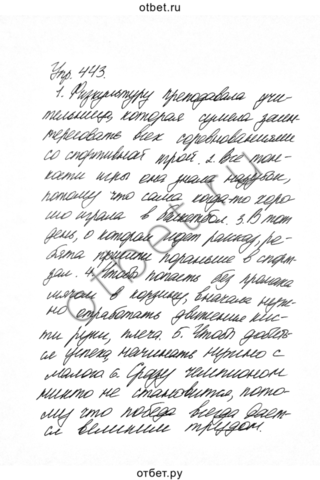 otbet.ru
Упр. 443.
1. Физкультуру преподавала учи-
тельница, которая сумела заин-
тересовать всех соревнованиями
со спортивной игрой. 2. Все тон-
кости игры она знала наизусть,
потому что сама когда-то хоро-
шо играла в баскетбол. 3. В тот
день, о котором идет рассказ, ре-
бята пришли пораньше в спорт-
зал. 4. Чтобы попасть без промаха
мячом в корзину, вначале нуж-
но отработать движение кис-
ти руки, плеча. 5. Чтобы добить-
ся успеха, начинать нужно с
малого. 6. Сразу чемпионом
никто не становится, пото-
му что победа всегда дает-
ся великим трудом.
otbet.ru
отбет.ру